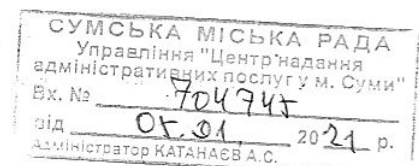 СУМСЬКА МІСЬКА РАДА
Управління "Центр надання
адміністративних послуг у м. Суми"
Вх. № 704745
від 05.01. 2021 р.
Адміністратор КАТАНАЄВ А.С.